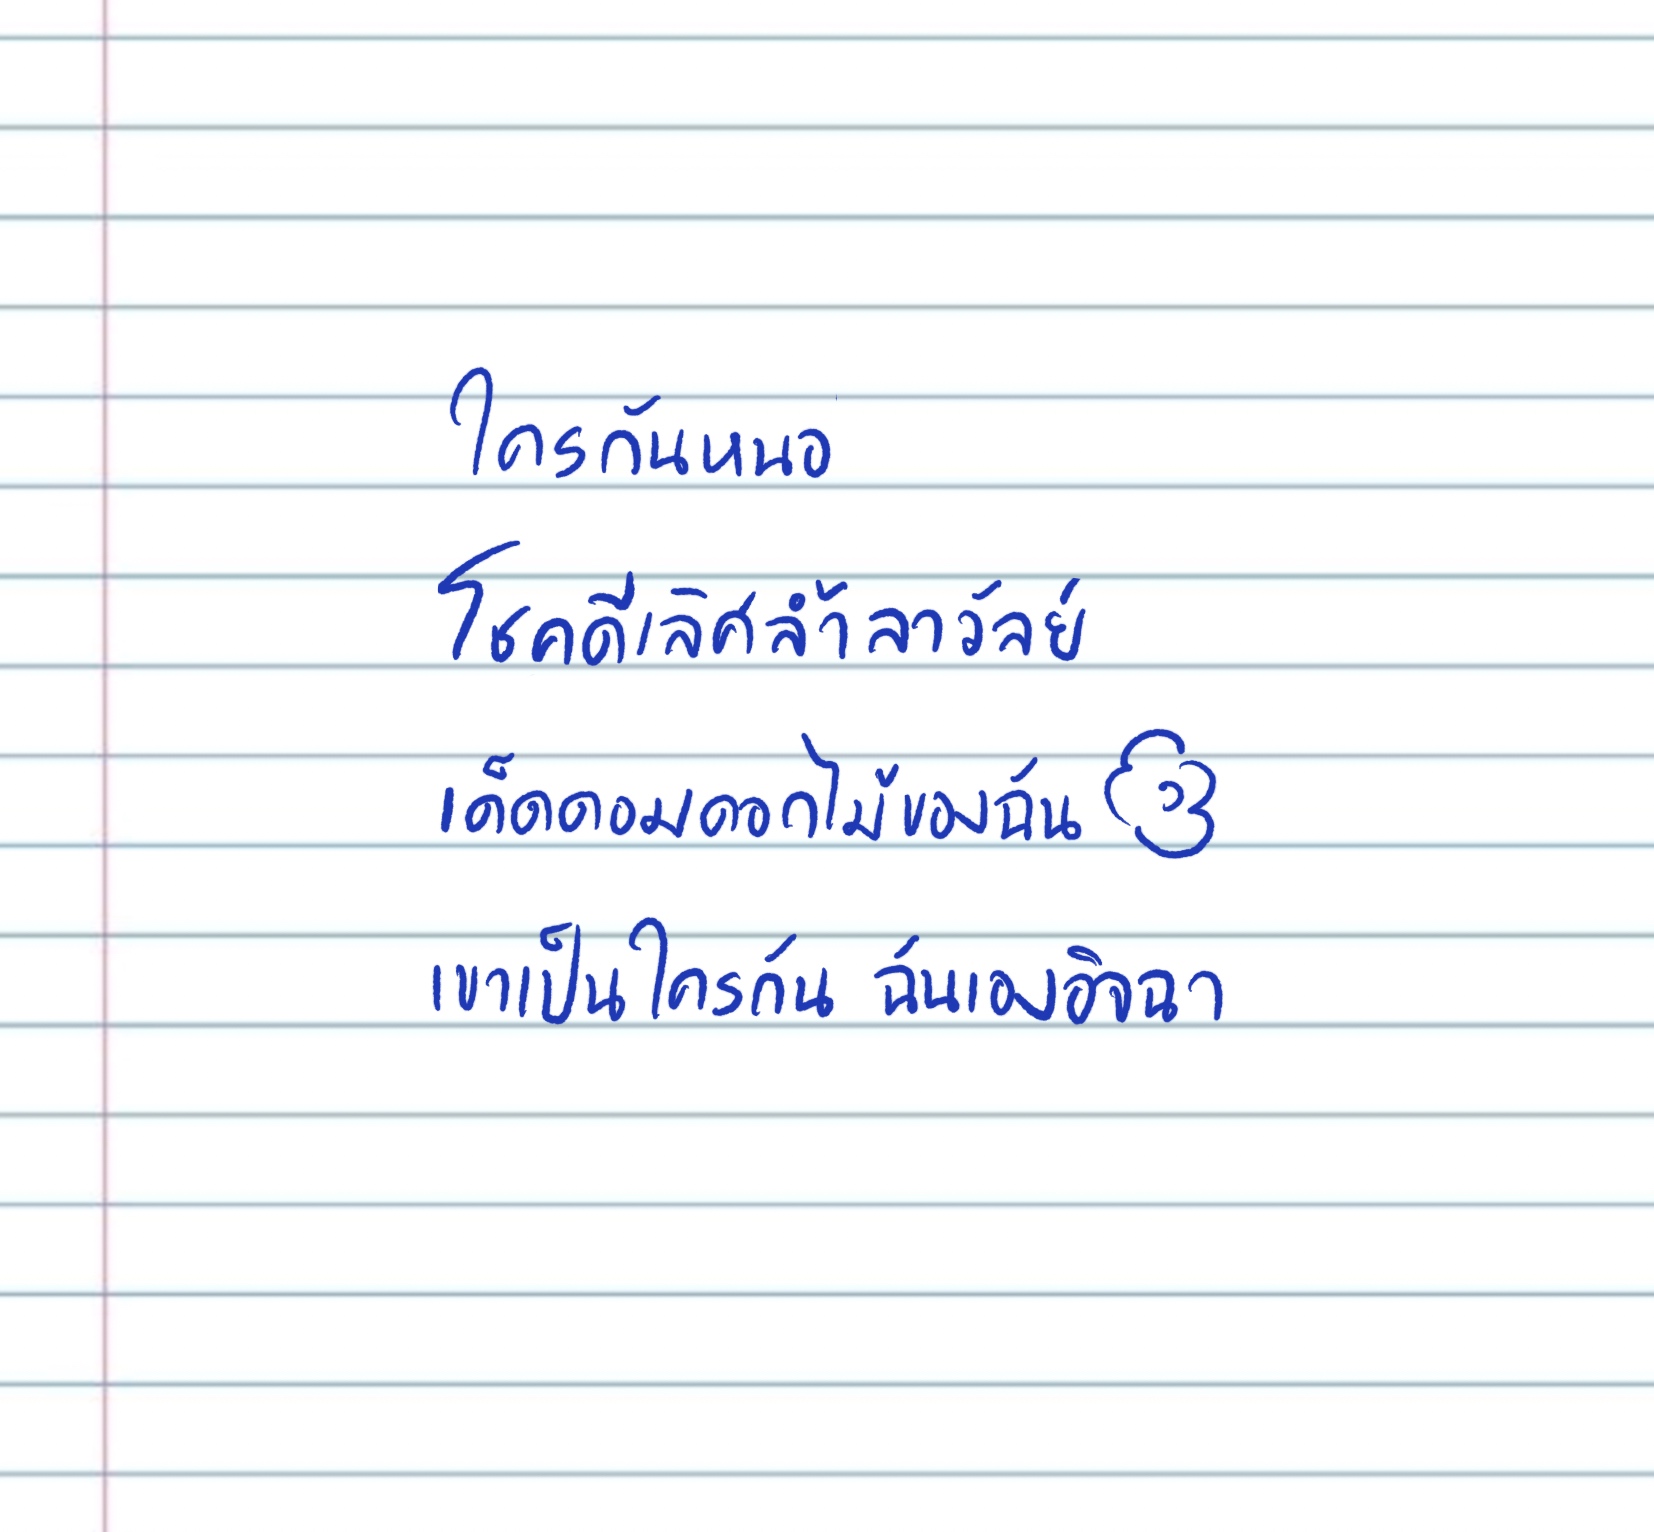 ใครกันหนอ
โชคดีเลิศล้ำลาวัลย์
เด็ดดอมดอกไม้ของฉัน
เขาเป็นใครกัน ฉันเองอิจฉา